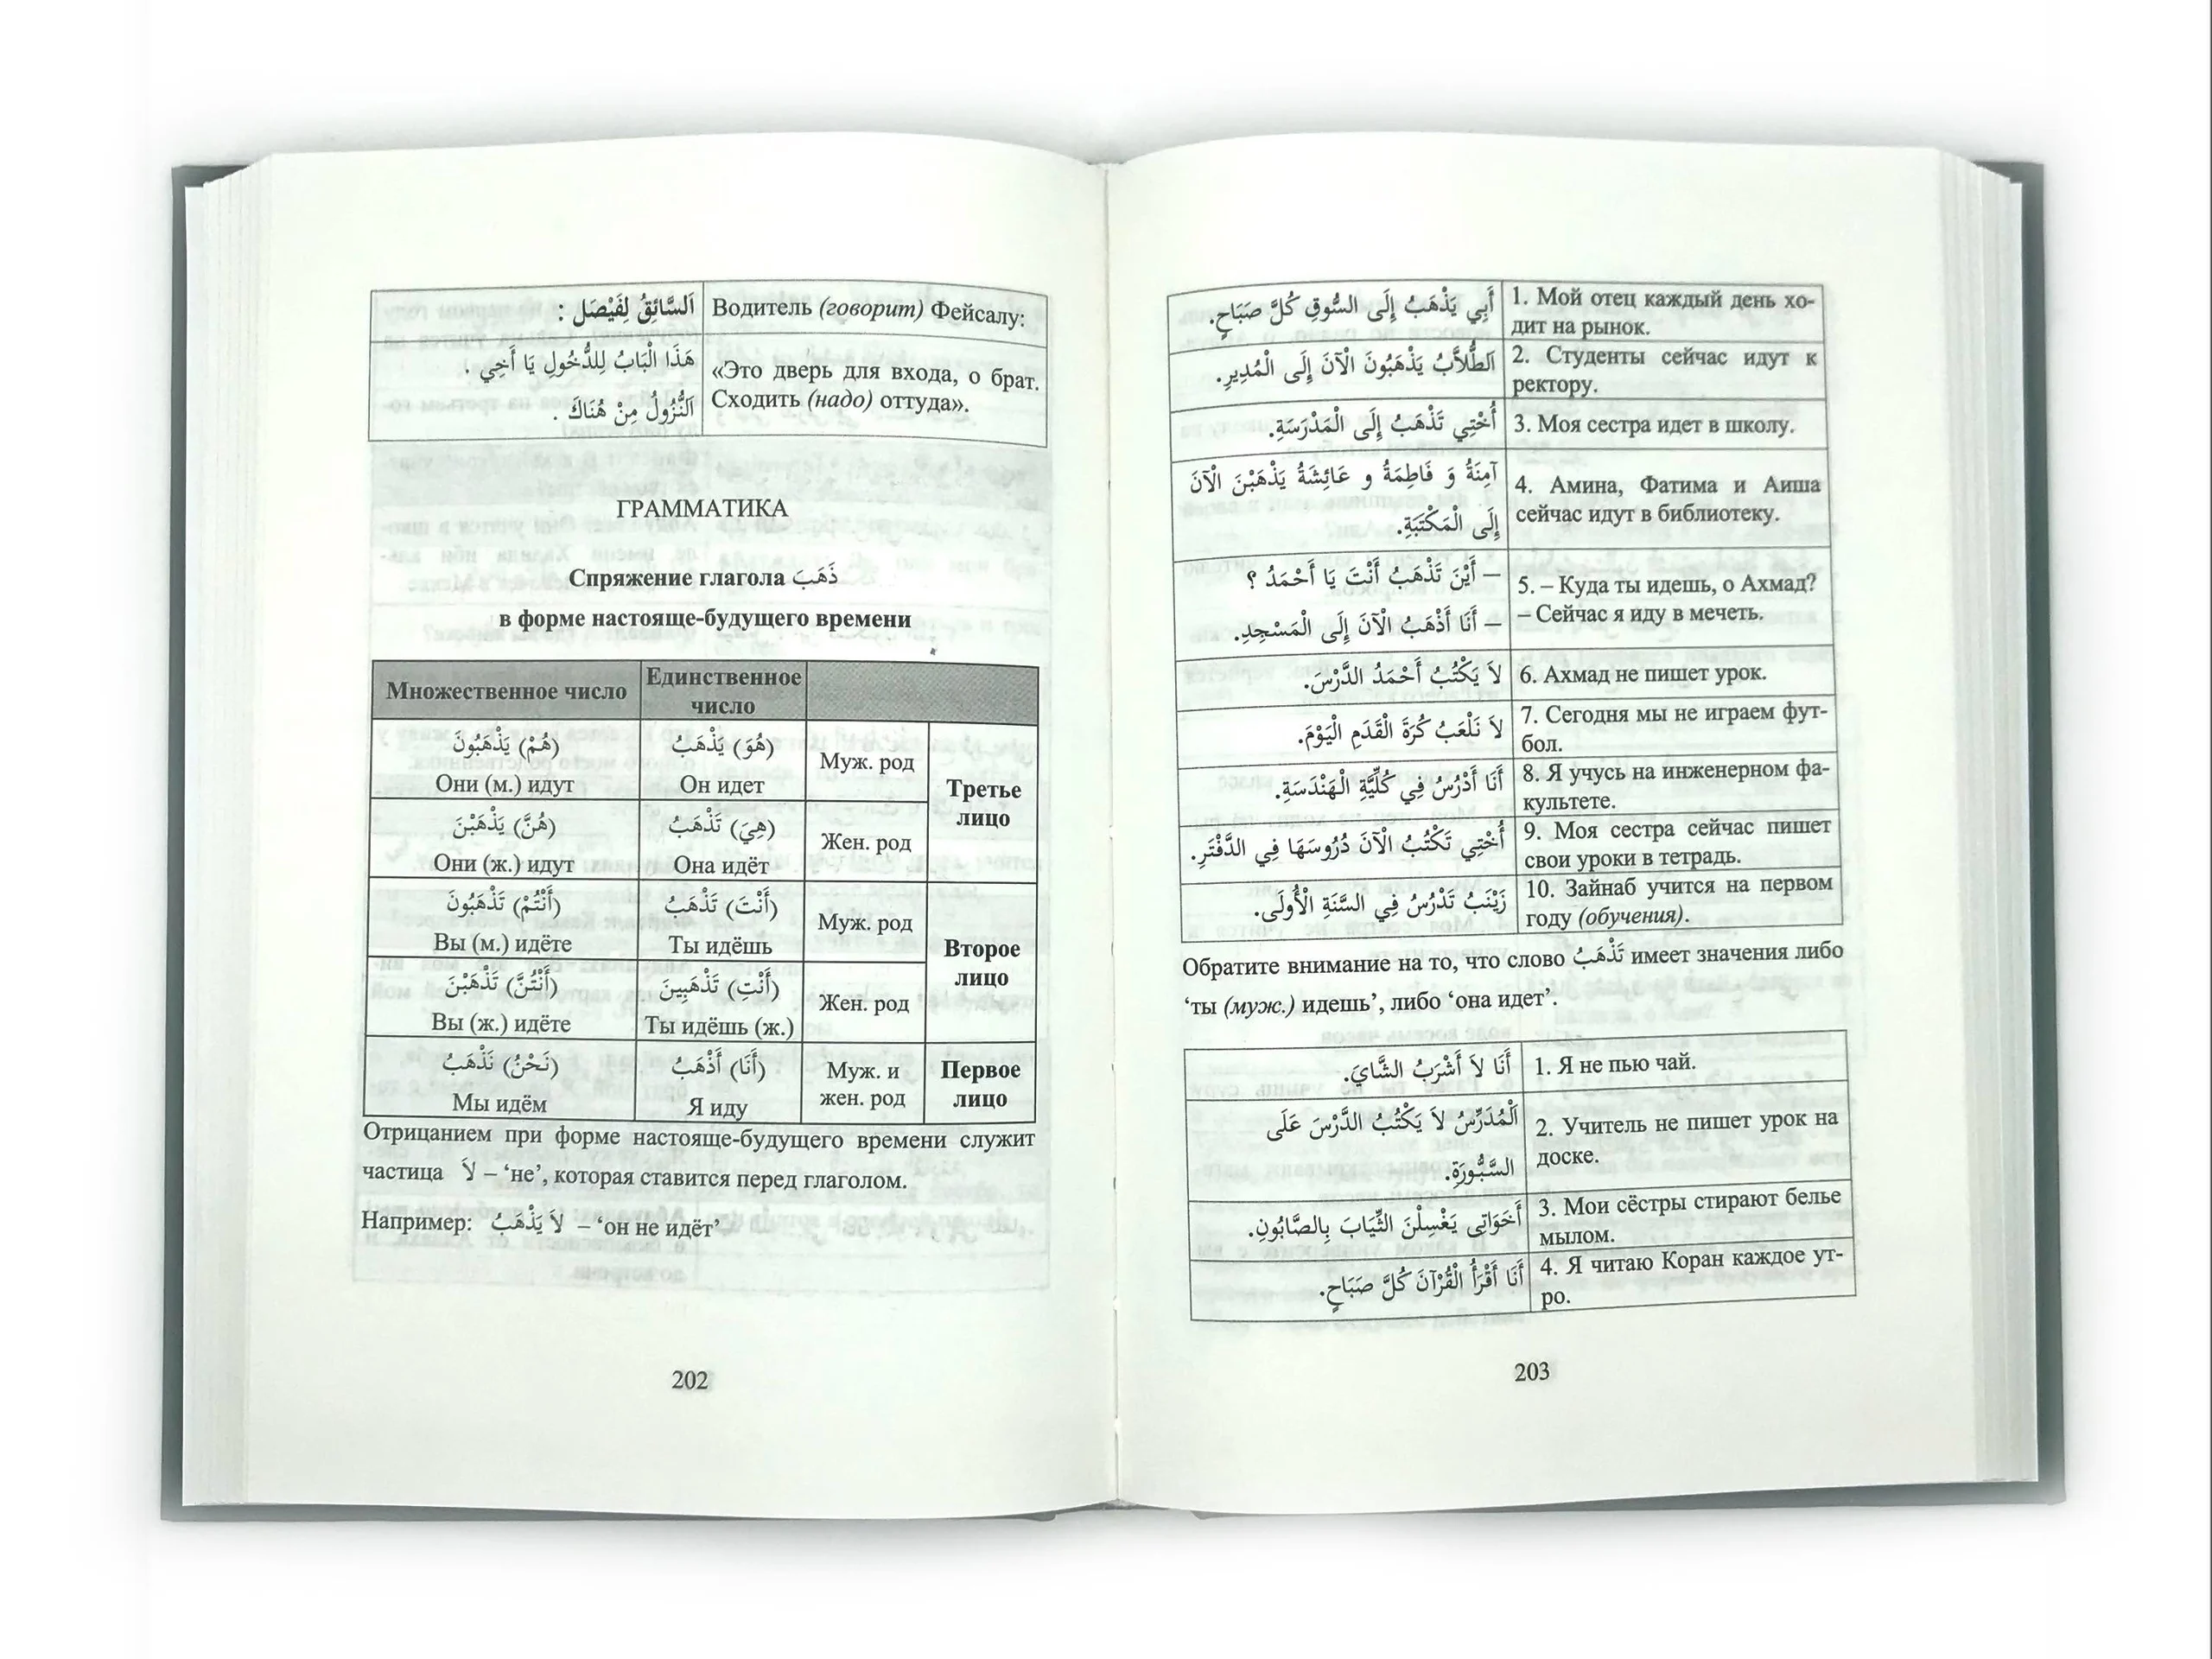 اَلسَّائِقُ لِفَيْصَل :
Водитель (говорит) Фейсалу:
هَذَا الْبَابُ لِلدُّخُولِ يَا أَخِي .
اَلنُّزُولُ مِنْ هُنَاكَ .
«Это дверь для входа, о брат.
Сходить (надо) оттуда».
ГРАММАТИКА
Спряжение глагола ذَهَبَ
в форме настояще-будущего времени
Множественное число
Единственное
число
(هُمْ) يَذْهَبُونَ
Они (м.) идут
(هُوَ) يَذْهَبُ
Он идет
Муж. род
Третье
лицо
(هُنَّ) يَذْهَبْنَ
Они (ж.) идут
(هِيَ) تَذْهَبُ
Она идёт
Жен. род
(أَنْتُمْ) تَذْهَبُونَ
Вы (м.) идёте
(أَنْتَ) تَذْهَبُ
Ты идёшь
Муж. род
Второе
лицо
(أَنْتُنَّ) تَذْهَبْنَ
Вы (ж.) идёте
(أَنْتِ) تَذْهَبِينَ
Ты идёшь (ж.)
Жен. род
(نَحْنُ) نَذْهَبُ
Мы идём
(أَنَا) أَذْهَبُ
Я иду
Муж. и
жен. род
Первое
лицо
Отрицанием при форме настояще-будущего времени служит
частица لاَ – ‘не’, которая ставится перед глаголом.
Например: لاَ يَذْهَبُ – ‘он не идёт’
202
أَبِي يَذْهَبُ إِلَى السُّوقِ كُلَّ صَبَاحٍ.
1. Мой отец каждый день хо-
дит на рынок.
اَلطُّلاَّبُ يَذْهَبُونَ الْآنَ إِلَى الْمُدِيرِ.
2. Студенты сейчас идут к
ректору.
أُخْتِي تَذْهَبُ إِلَى الْمَدْرَسَةِ.
3. Моя сестра идет в школу.
آمِنَةُ وَ فَاطِمَةُ و عَائِشَةُ يَذْهَبْنَ الْآنَ
إِلَى الْمَكْتَبَةِ.
4. Амина, Фатима и Аиша
сейчас идут в библиотеку.
– أَيْنَ تَذْهَبُ أَنْتَ يَا أَحْمَدُ ؟
– أَنَا أَذْهَبُ الْآنَ إِلَى الْمَسْجِدِ.
5. – Куда ты идешь, о Ахмад?
– Сейчас я иду в мечеть.
لاَ يَكْتُبُ أَحْمَدُ الدَّرْسَ.
6. Ахмад не пишет урок.
لاَ نَلْعَبُ كُرَةَ الْقَدَمِ الْيَوْمَ.
7. Сегодня мы не играем фут-
бол.
أَنَا أَدْرُسُ فِي كُلِّيَّةِ الْهَنْدَسَةِ.
8. Я учусь на инженерном фа-
культете.
أُخْتِي تَكْتُبُ الْآنَ دُرُوسَهَا فِي الدَّفْتَرِ.
9. Моя сестра сейчас пишет
свои уроки в тетрадь.
زَيْنَبُ تَدْرُسُ فِي السَّنَةِ الْأُولَى.
10. Зайнаб учится на первом
году (обучения).
Обратите внимание на то, что слово تَذْهَبُ имеет значения либо
‘ты (муж.) идешь’, либо ‘она идет’.
أَنَا لاَ أَشْرَبُ الشَّايَ.
1. Я не пью чай.
اَلْمُدَرِّسُ لاَ يَكْتُبُ الدَّرْسَ عَلَى
السَّبُّورَةِ.
2. Учитель не пишет урок на
доске.
أَخَوَاتِى يَغْسِلْنَ الثِّيَابَ بِالصَّابُونِ.
3. Мои сёстры стирают белье
мылом.
أَنَا أَقْرَأُ الْقُرْآنَ كُلَّ صَبَاحٍ.
4. Я читаю Коран каждое ут-
ро.
203